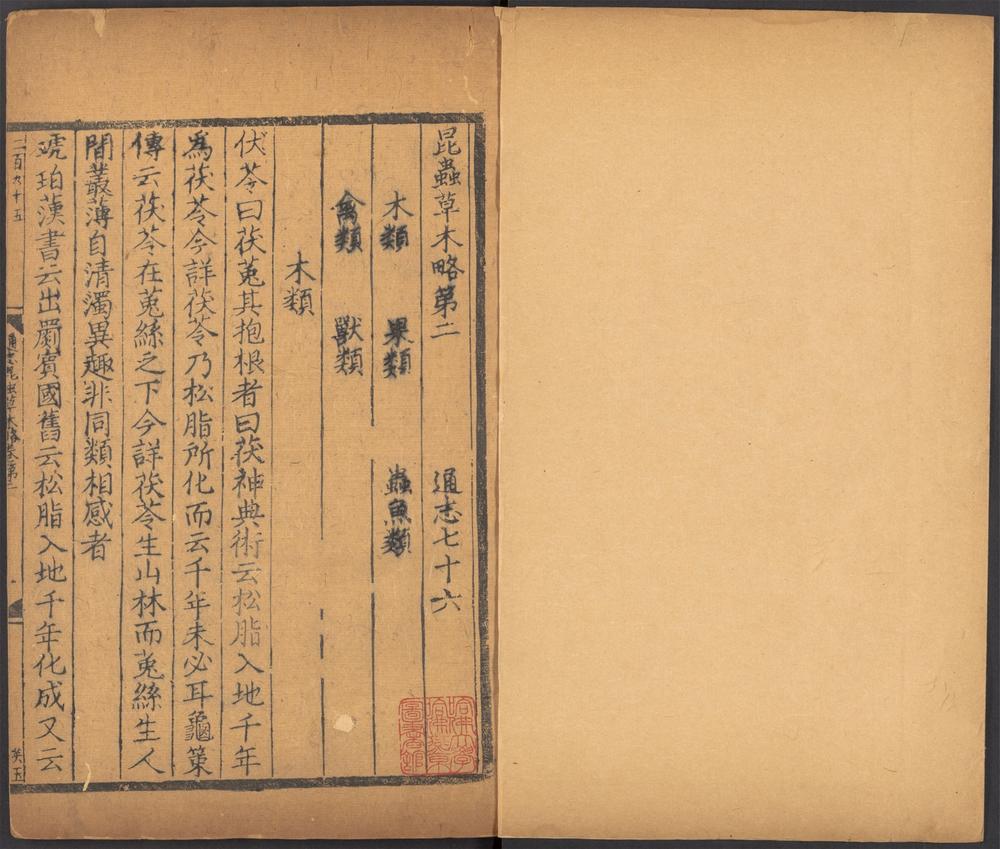 昆蟲草木略第二 通志七十六
木類 果類 蟲魚類
禽類 獸類
木類
伏苓曰茯菟其抱根者曰茯神典術云松脂入地千年
為茯苓今詳茯苓乃松脂所化而云千年未必耳龜策
傳云茯苓在菟絲之下今詳茯苓生山林而菟絲生人
間叢薄自清濁異趣非同類相感者
琥珀漢書云出罽賓國舊云松脂入地千年化成又云
二百九十五
哈佛大學哈佛燕京圖書館